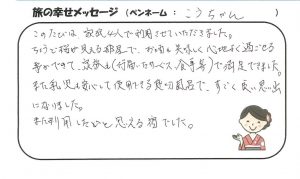 旅の幸せメッセージ (ペンネーム : こうちゃん )
このたびは 家族4人で利用させていただきました。
ちょうど桜が見える部屋で、お肉も美味しく心地よく過ごせる
事ができて、設備も(行届いたサービス、食事等)で満足できました。
また乳児も安心して使用できる貸切風呂で、すごく良い思い出
になりました。
また利用したいと思える宿でした。